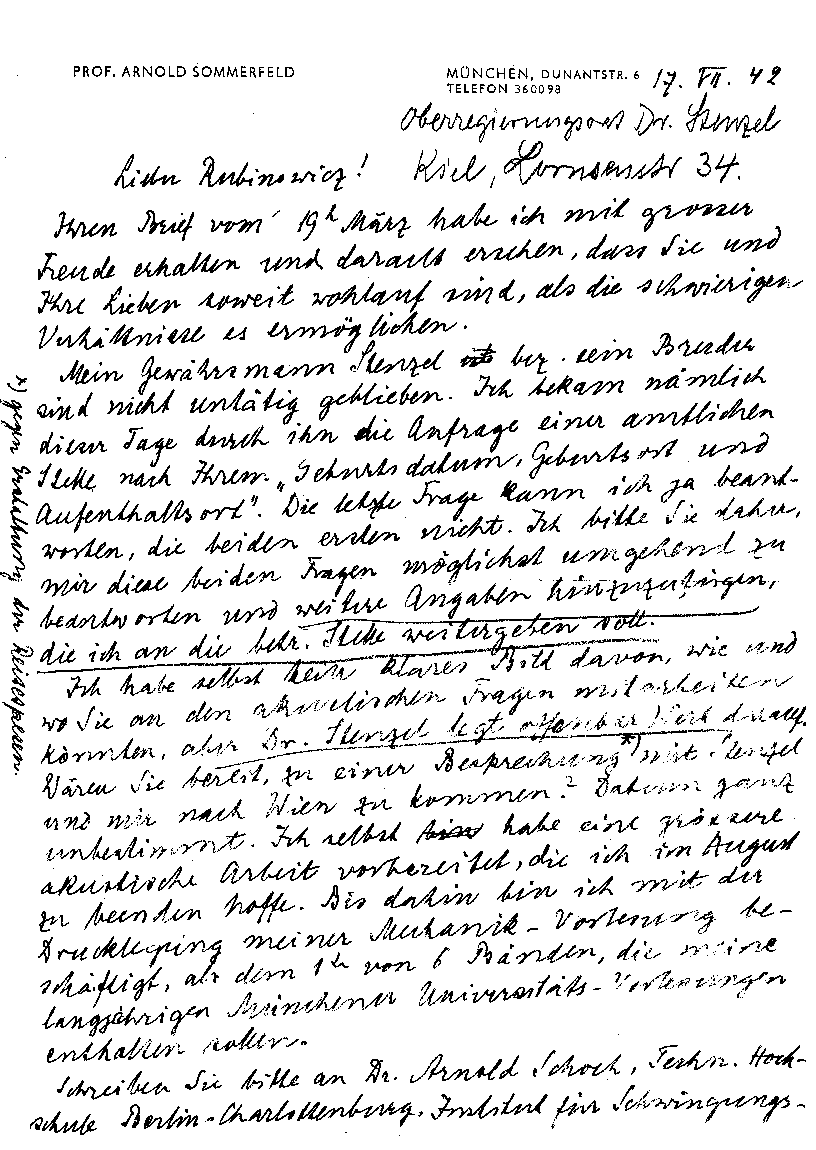 PROF. ARNOLD SOMMERFELD
MÜNCHEN, DUNANTSTR. 6
TELEFON 360098
17. VII. 42
Oberregierungsrat Dr. Stenzel
Kiel, Lornsenstr 34.
Lieber Rubinowicz!
Ihren Brief vom 19ten März habe ich mit grosser
Freude erhalten und daraus ersehen, dass Sie und
Ihre Lieben soweit wohlauf sind, als die schwierigen
Verhältnisse es ermöglichen.
Mein Gewährsmann Stenzel bez. sein Bruder
sind nicht untätig geblieben. Ich bekam nämlich
dieser Tage durch ihn die Anfrage einer amtlichen
Stelle nach Ihrem „Geburtsdatum, Geburtsort und
Aufenthaltsort". Die letzte Frage kann ich ja beant-
worten, die beiden ersten nicht. Ich bitte Sie daher,
mir diese beiden Fragen möglichst umgehend zu
beantworten und weitere Angaben hinzuzufügen,
die ich an die betr. Stelle weitergeben soll.
Ich habe selbst kein klares Bild davon, wie und
wo Sie an den akustischen Fragen mitarbeiten
könnten, aber Dr. Stenzel legt offenbar Wert darauf.
Wären Sie bereit, zu einer Besprechung*) mit Stenzel
und mir nach Wien zu kommen? Datum ganz
unbestimmt. Ich selbst bin habe eine grössere
akustische Arbeit vorbereitet, die ich im August
zu beenden hoffe. Bis dahin bin ich mit der
Drucklegung meiner Mechanik-Vorlesung be-
schäftigt, als dem 1ten von 6 Bänden, die meine
langjährigen Münchener Universitäts-Vorlesungen
enthalten sollen.
Schreiben Sie bitte an Dr. Arnold Schoch, Techn. Hoch-
schule Berlin-Charlottenburg, Institut für Schwingungs-
*) gegen Erstattung der Reisespesen.